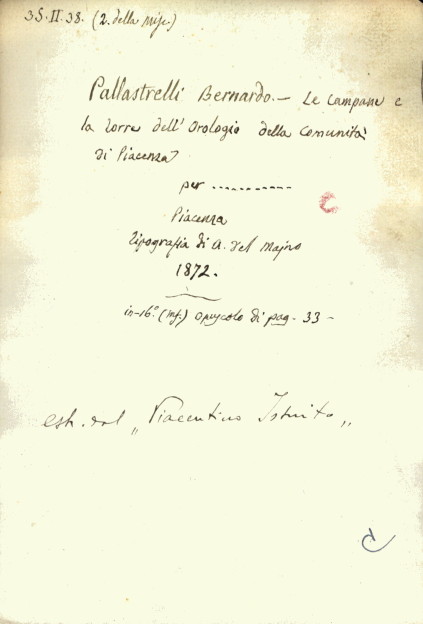 35.II.38. (2. della misc.)
Pallastrelli Bernardo. — Le Campane e
la Torre dell'Orologio della Comunità
di Piacenza
per ............
Piacenza
Tipografia di A. Del Majno
1872.
in-16.° (mf.) opuscolo di pag. 33 -
estr. dal „Piacentino Istruito„
C